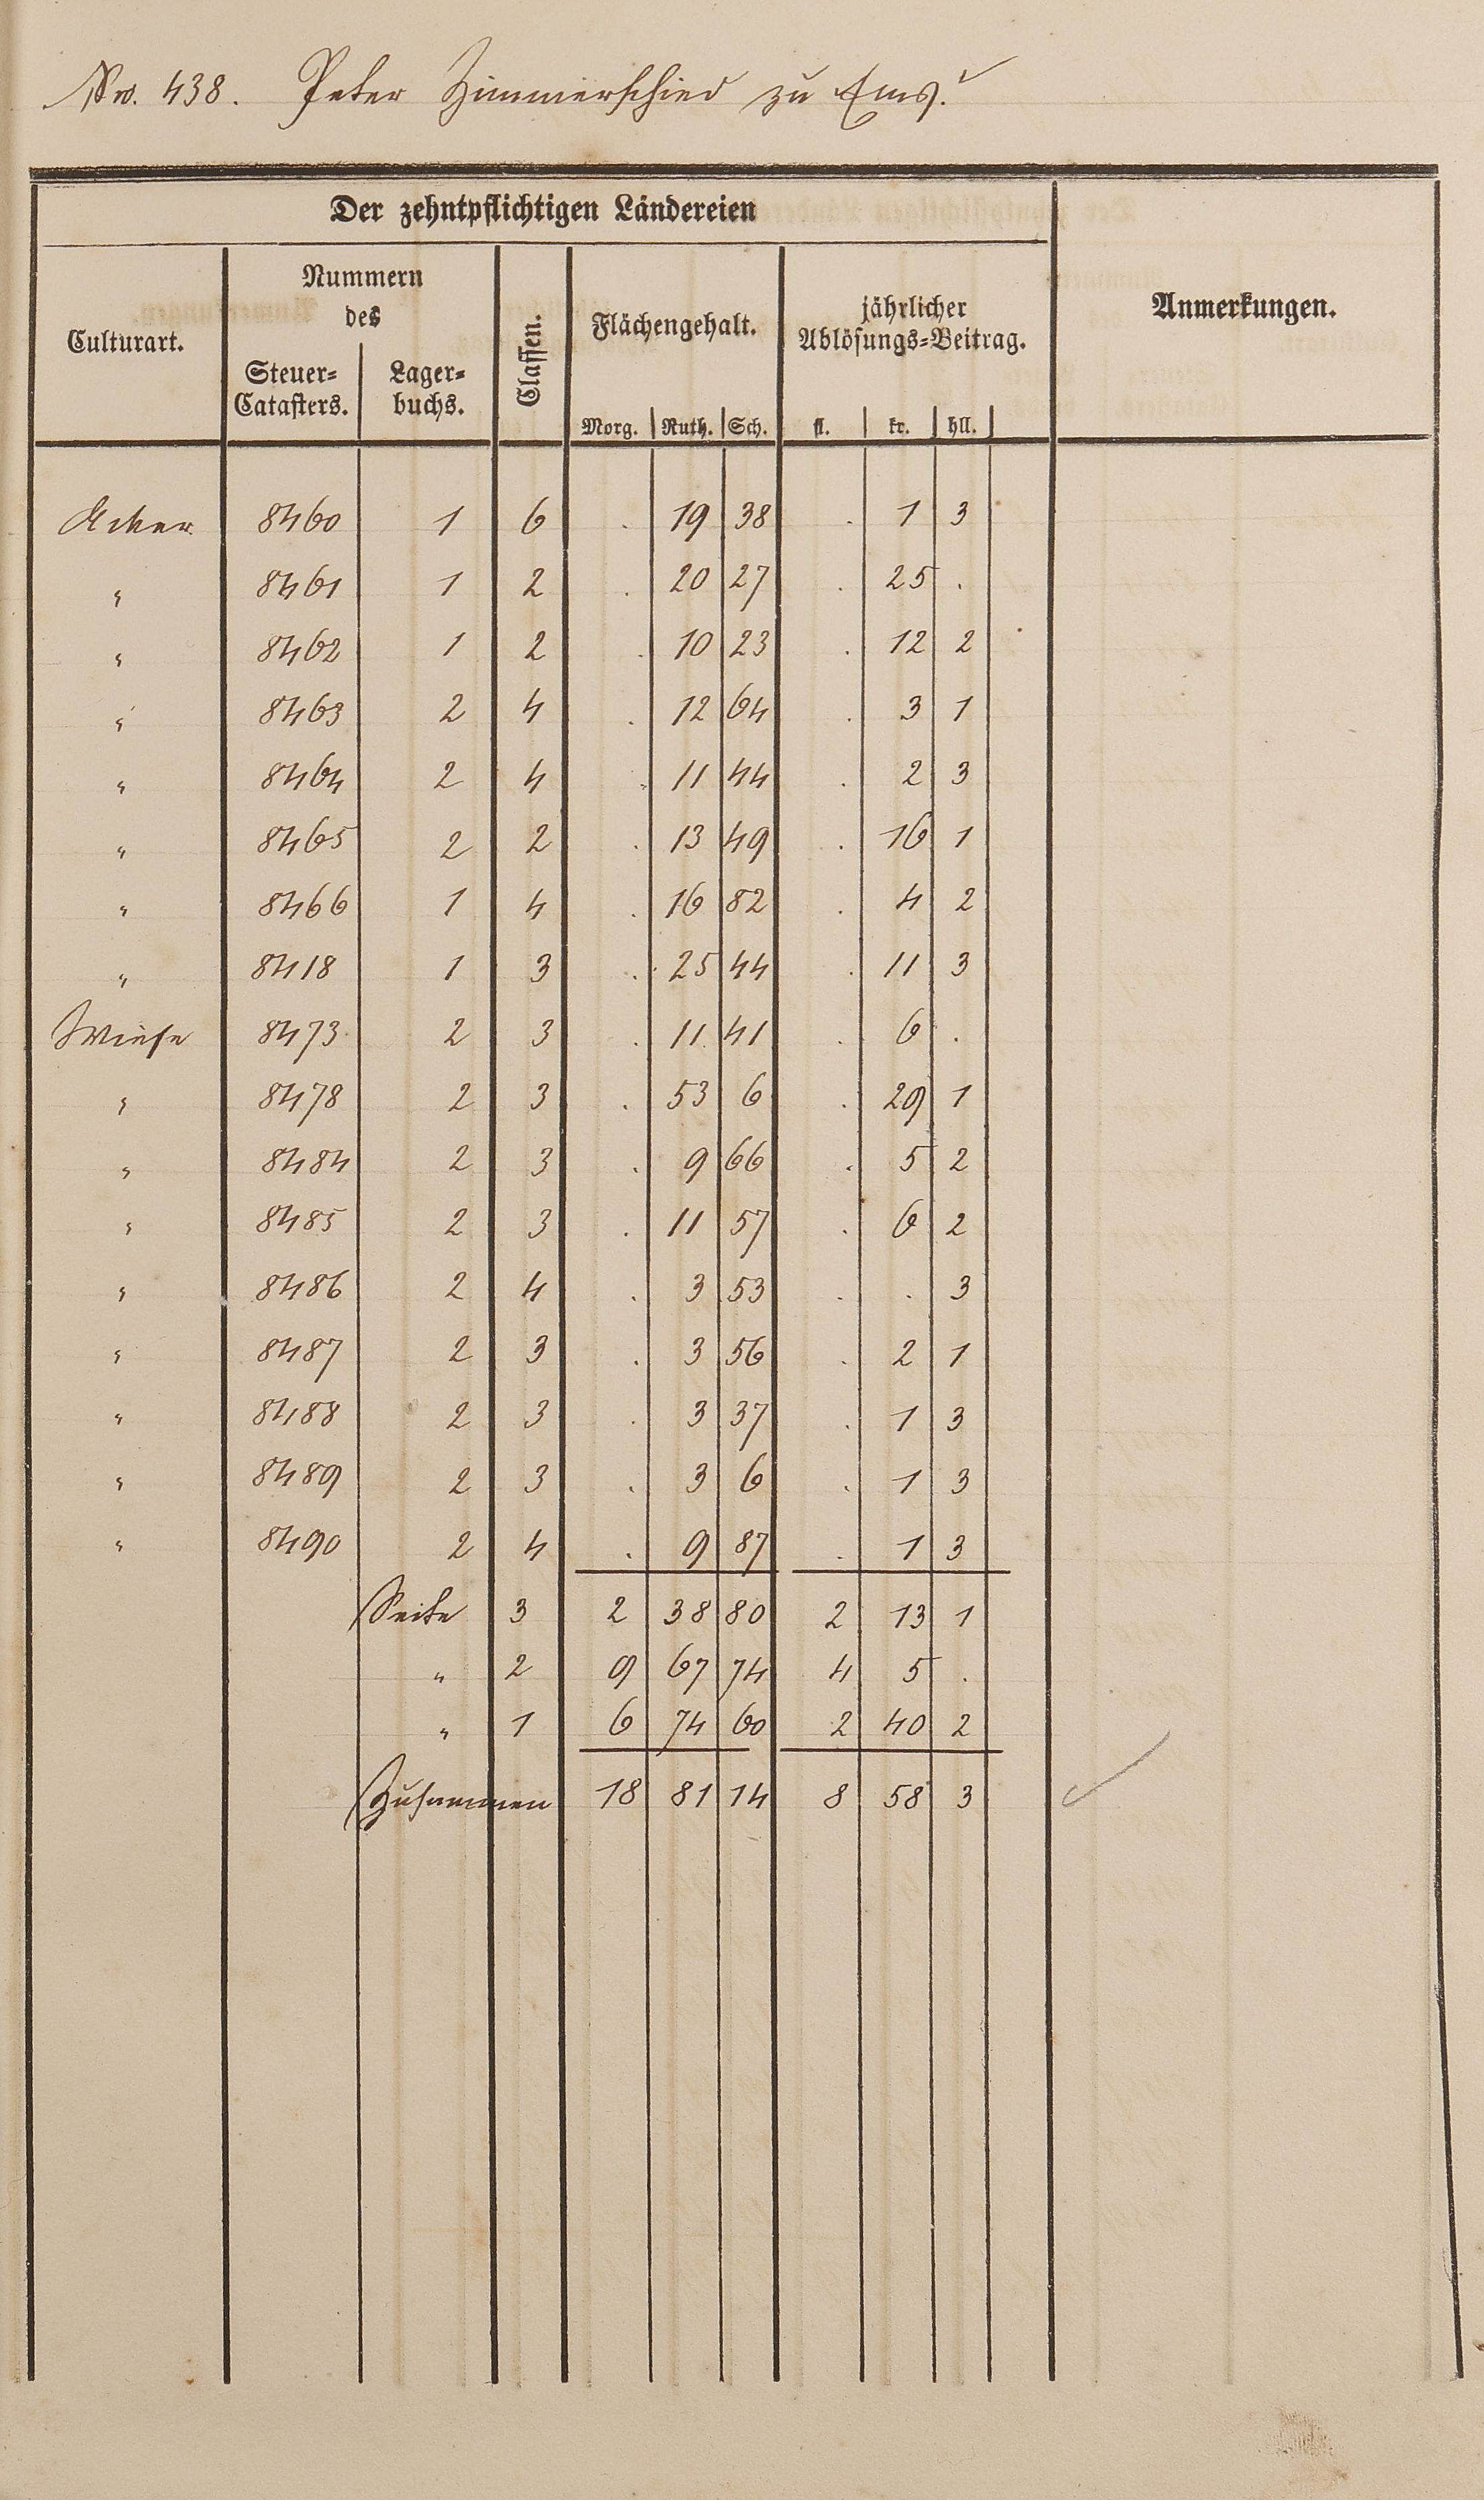 No. 438. Peter Zimmerschied zu Ems.
Der zehntpflichtigen Ländereien
Culturart.
Nummern
des
Steuer=
Catasters.
Lager=
buchs.
Classen.
Flächengehalt.
Morg. Ruth. Sch.
jährlicher
Ablösungs=Beitrag.
fl. kr. hll.
Anmerkungen.
Acker 8460 1 6 . 19 38 . 1 3
" 8461 1 2 . 20 27 . 25 .
" 8462 1 2 . 10 23 . 12 2
" 8463 2 4 . 12 64 . 3 1
" 8464 2 4 . 11 44 . 2 3
" 8465 2 2 . 13 49 . 16 1
" 8466 1 4 . 16 82 . 4 2
" 8418 1 3 . 25 44 . 11 3
Wiese 8473 2 3 . 11 41 . 6 .
" 8478 2 3 . 53 6 . 29 1
" 8484 2 3 . 9 66 . 5 2
" 8485 2 3 . 11 57 . 6 2
" 8486 2 4 . 3 53 . . 3
" 8487 2 3 . 3 56 . 2 1
" 8488 2 3 . 3 37 . 1 3
" 8489 2 3 . 3 6 . 1 3
" 8490 2 4 . 9 87 . 1 3
Seite 3 2 38 80 2 13 1
" 2 9 67 74 4 5 .
" 1 6 74 60 2 40 2
Zusammen 18 81 14 8 58 3